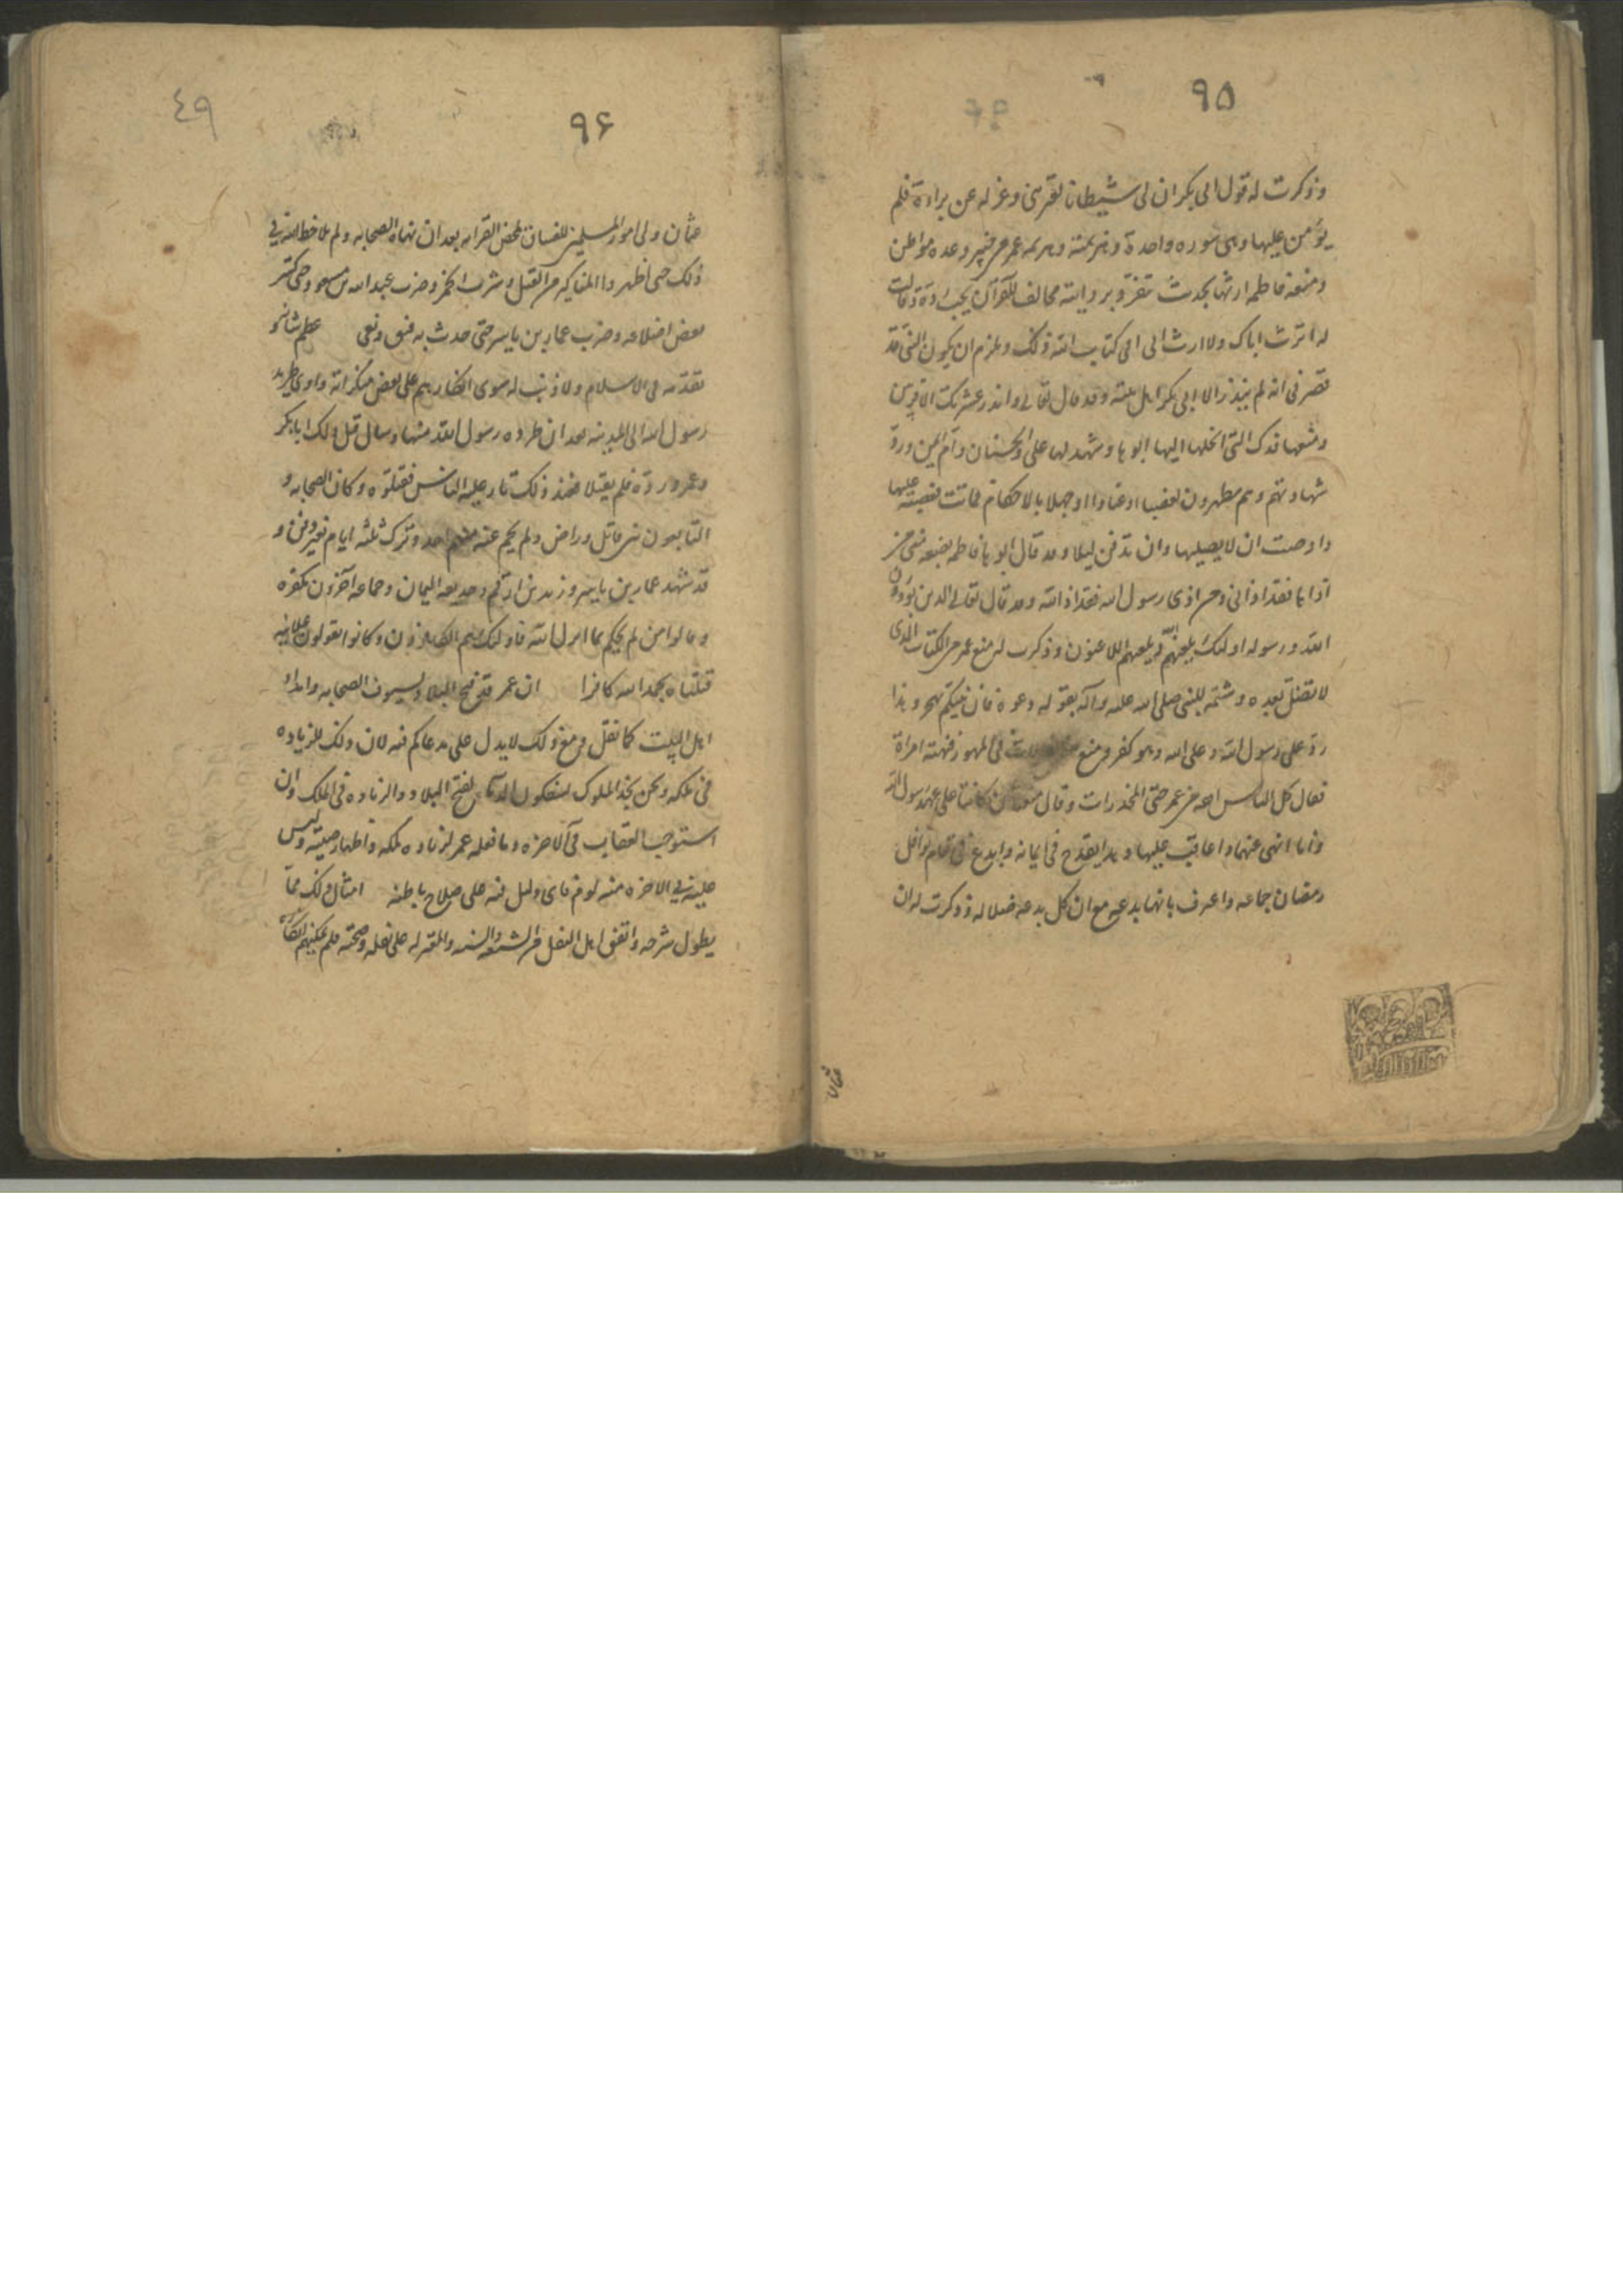 ٩٥
وذكرت له قول ابى بكر ان لى شيطانا يعترينى وعزله عن براءة فلم
يؤمن عليها وهى سوره واحدة وهزيمته وهزيمه عمر من خيبر وعده مواطن
ومنعه فاطمه ارثها بحديث تفرّد بروايته مخالف للقرآن يجب ردّه وقالت
له اترث اباك ولا ارث ابى افى كتاب الله ذلك ويلزم ان يكون النبى قد
قصر فى انه لم ينذر الا ابى بكر اهل بيته وقد قال تعالى وانذر عشيرتك الاقربين
ومنعها فدك التى انحلها اليها ابوها وشهد لها على والحسنان وام ايمن وردّ
شهادتهم وهم مطهرون تعصبا او عنادا او جهلا بالاحكام فماتت مغضبة عليها
واوصت ان لا يصليها وان تدفن ليلا وقد قال ابوها فاطمه بضعه منى من
آذاها فقد اذانى ومن اذى رسول الله فقد اذ الله وقد قال تعالى الذين يؤذون
الله ورسوله اولئك يلعنهم الله ويلعنهم اللاعنون وذكرت له منع عمر من الكتاب الذى
لا نضل بعده وشتمه للنبى صلى الله عليه وآله بقوله دعوه فان نبيكم يهجر وهذا
ردّ على رسول الله وعلى الله وهو كفر ومنع فى المهور فنهته امراة
فقال كل الناس افقه من عمر حتى المخدرات وقال متعتان كانتا على عهد رسول الله
وانا انهى عنهما واعاقب عليها وهذا يقدح فى ايمانه وابدع فى قيام نوافل
رمضان جماعه واعترف بانها بدعه مع ان كل بدعه ضلاله وذكرت له ان
عثمان
٩٦
٤٩
عثمان ولى امور المسلمين للفساق لمحض القرابه بعد ان نهاه الصحابه ولم يلاحظ الله فى
ذلك حتى اظهروا المناكير من القتل وشرب الخمر وضرب عبد الله بن مسعود حتى كسر
بعض اضلاعه وضرب عمار بن ياسر حتى حدث به فتق ونفى عظم شانه و
تقدّمه فى الاسلام ولا ذنب له سوى انكارهم على بعض منكراته واوى طريد
رسول الله الى المدينه بعد ان طرده رسول الله منها وسال قبل ذلك ابا بكر
وعمر ردّه فلم يقبلا فعند ذلك ثار عليه الناس فقتلوه وكان الصحابه و
التابعون بين قاتل وراض ولم يحم عنه منهم احد وترك ثلثه ايام بغير دفن و
قد شهد عمار بن ياسر وزيد بن ارقم وحذيفه اليمان وجماعه آخرون بكفره
وقالوا من لم يحكم بما انزل الله فاولئك هم الكافرون وكانوا يقولون علانيه
قتلناه بحمد الله كافرا ان عمر قد فتح البلاد بسيوف الصحابه وامداد
اهل البيت كما نقل ومع ذلك لا يدل على مدعاكم فيه لان ذلك للزياده
فى ملكه ونحن نجد الملوك يسفكون الدماء لفتح البلاد والزياده فى الملك وان
استوجب العقاب فى آلاخره وما فعله عمر لزياده ملكه واظهار صيته وليس
عليه فى الاخره منه لوم فاى دليل فيه على صلاح باطنه امثال ذلك ممّا
يطول شرحه واتفق اهل النقل من الشيعه والسنه والمعتزله على نقله وصحته فلم يمكنهم انكاره